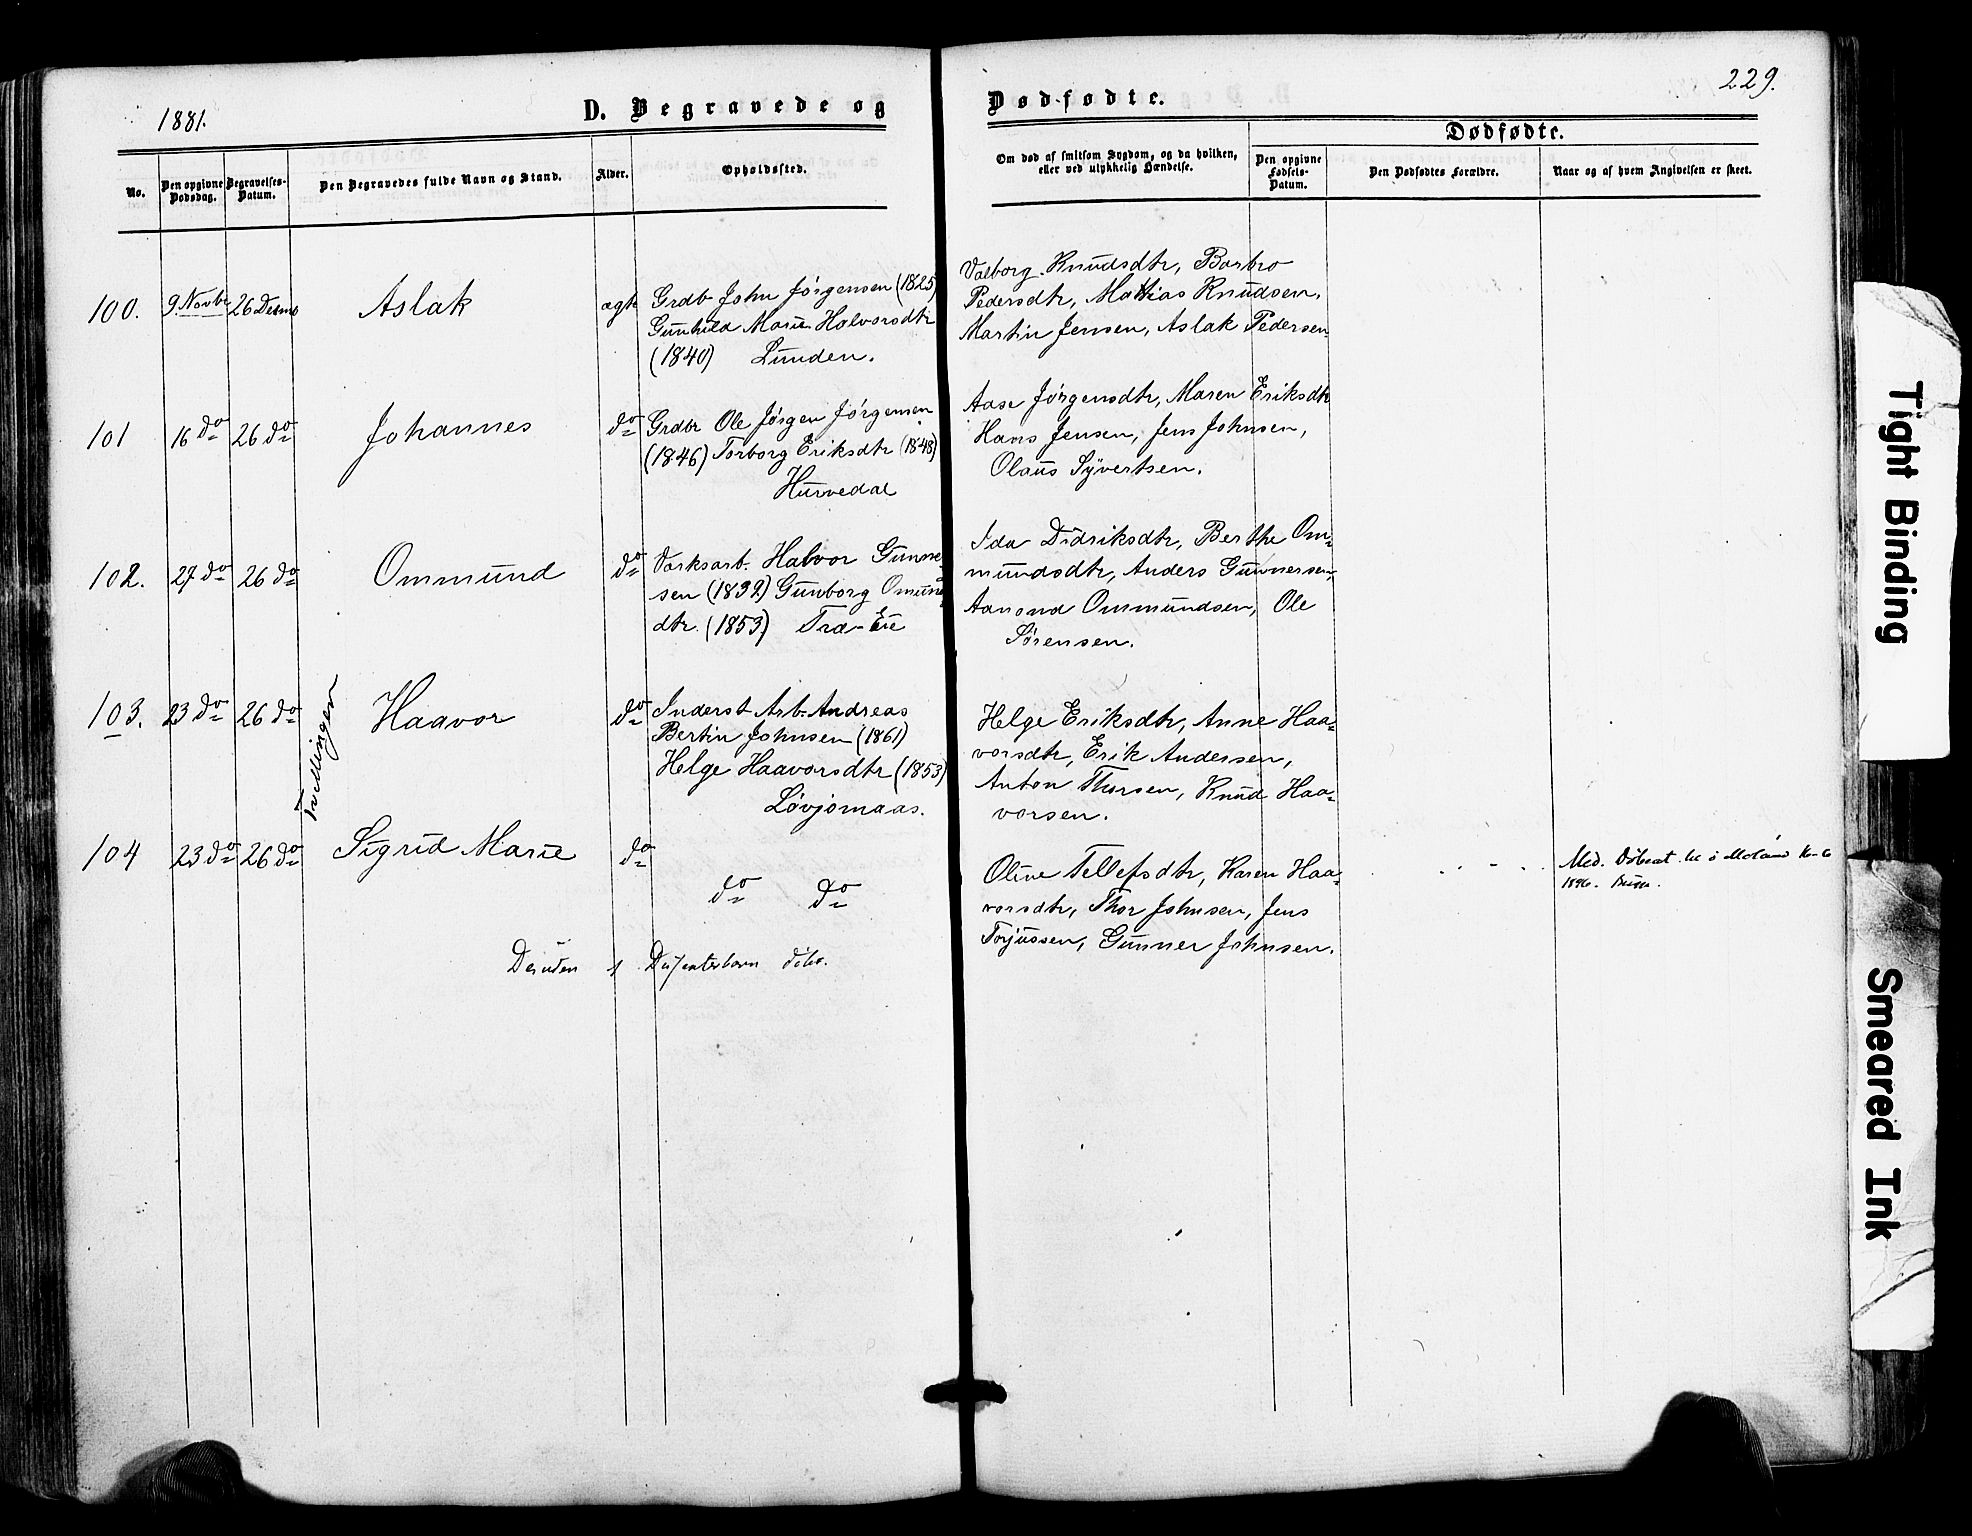 1881.
D. Begravede og
Dødfødte.
229.
No.
Den opgivne Dødsdag.
Begravelses-Datum.
Den Begravedes fulde Navn og Stand.
Alder.
Opholdssted.
Om død af smitsom Sygdom, og da hvilken,
eller ved ulykkelig Hændelse.
Dødfødte.
Den opgivne Fødsels-Datum.
Den Dødfødtes Forældre.
Naar og af hvem Angivelsen er skeet.
100. 9 Novbr 26 Decmb Aslak ægte
Grdb John Jørgensen (1825)
Gunhild Marie Halvorsdtr
(1840) Lunden.
Valborg Knudsdtr, Barbro
Pedersdtr, Mathias Knudsen,
Martin Jensen, Aslak Pedersen
101 16 do 26 do Johannes do
Grdbr Ole Jørgen Jørgensen
(1846) Torborg Eriksdtr (1848)
Hurvedal
Aase Jørgensdtr, Maren Eriksdtr
Hans Jensen, Jens Johnsen,
Olaus Syvertsen.
102. 27 do 26 do Ommund do
Værksarb. Halvor Gunne-
sen (1832) Gunborg Omunds
dtr. (1853) Træ-Eie
Ida Didriksdtr, Berthe Om-
mundsdtr, Anders Gunnersen,
Aanond Ommundsen, Ole
Sørensen.
Tvillinger
103. 23 do 26 do Haavor do
Inderst Arb. Andreas
Bertin Johnsen (1861)
Helge Haavorsdtr (1853)
Løvjomaas.
Helge Eriksdtr, Anne Haa-
vorsdtr, Erik Andersen,
Anton Thorsen, Knud Haa-
vorsen.
104 23 do 26 do Sigrid Marie do
do do
Oline Tellefsdtr, Karen Haa-
vorsdtr, Thor Johnsen, Jens
Torjussen, Gunner Johnsen.
Med. Døbeat. til
1896.
Desuden 1 Dissenterbarn døbt.
Tight Binding
Smeared Ink